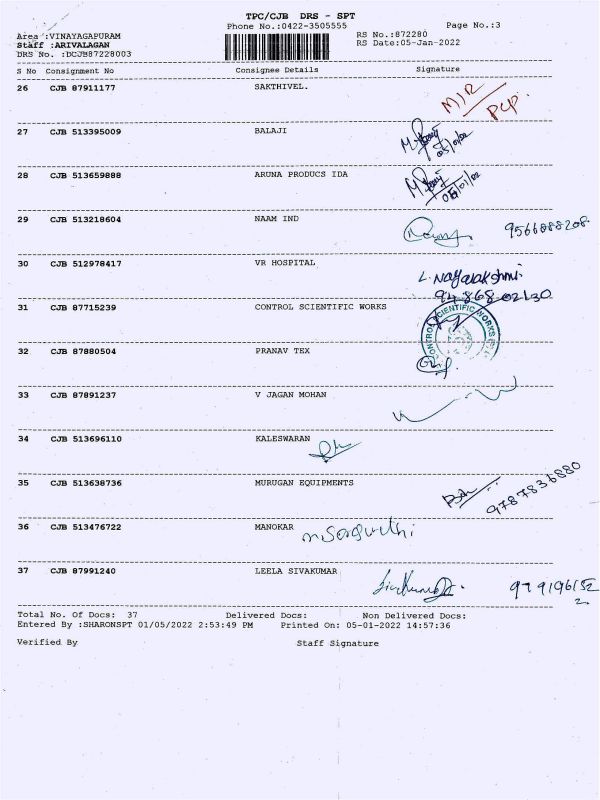 TPC/CJB DRS - SPT
Phone No.:0422-3505555 Page No.:3
Area :VINAYAGAPURAM RS No.:872280
Staff :ARIVALAGAN RS Date:05-Jan-2022
DRS No. :DCJB87228003
S No Consignment No Consignee Details Signature
26 CJB 87911177 SAKTHIVEL.
27 CJB 513395009 BALAJI
28 CJB 513659888 ARUNA PRODUCS IDA
29 CJB 513218604 NAAM IND 9566088208
30 CJB 512978417 VR HOSPITAL
L. Nagalakshmi
94868 02130
31 CJB 87715239 CONTROL SCIENTIFIC WORKS
CONTROL SCIENTIFIC WORKS
32 CJB 87880504 PRANAV TEX
33 CJB 87891237 V JAGAN MOHAN
34 CJB 513696110 KALESWARAN
35 CJB 513638736 MURUGAN EQUIPMENTS 9787836880
36 CJB 513476722 MANOKAR
37 CJB 87991240 LEELA SIVAKUMAR
Total No. Of Docs: 37 Delivered Docs: Non Delivered Docs:
Entered By :SHARONSPT 01/05/2022 2:53:49 PM Printed On: 05-01-2022 14:57:36
Verified By Staff Signature